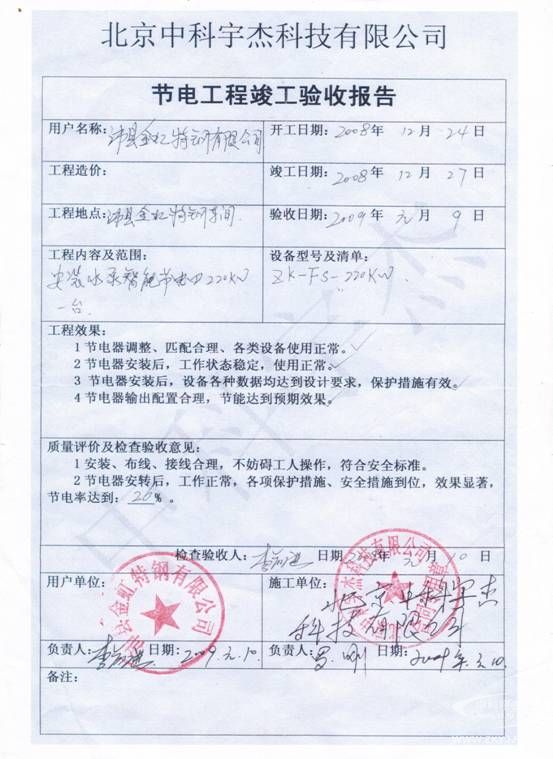 北京中科宇杰科技有限公司
节电工程竣工验收报告
用户名称：沛县金虹特钢有限公司
开工日期：2008年 12月 24日
工程造价：
竣工日期：2008年 12月 27日
工程地点：沛县金虹特钢车间
验收日期：2009年 元月 9日
工程内容及范围：
安装水泵智能节电口220KW
一台
设备型号及清单：
ZK-FS-220KW
工程效果：
1 节电器调整、匹配合理、各类设备使用正常。✓
2 节电器安装后，工作状态稳定，使用正常。✓
3 节电器安装后，设备各种数据均达到设计要求，保护措施有效。✓
4 节电器输出配置合理，节能达到预期效果。
质量评价及检查验收意见：
1 安装、布线、接线合理，不妨碍工人操作，符合安全标准。
2 节电器安转后，工作正常，各项保护措施、安全措施到位，效果显著，
节电率达到：20%。
检查验收人： 日期 元月 10日
用户单位：
县金虹特钢有限公司
施工单位：
北京中科宇杰
科技有限公司
宇杰科技有限公司
负责人： 日期：2009.元.10.
负责人： 日期：2009年.元.10.
备注：
中科宇杰